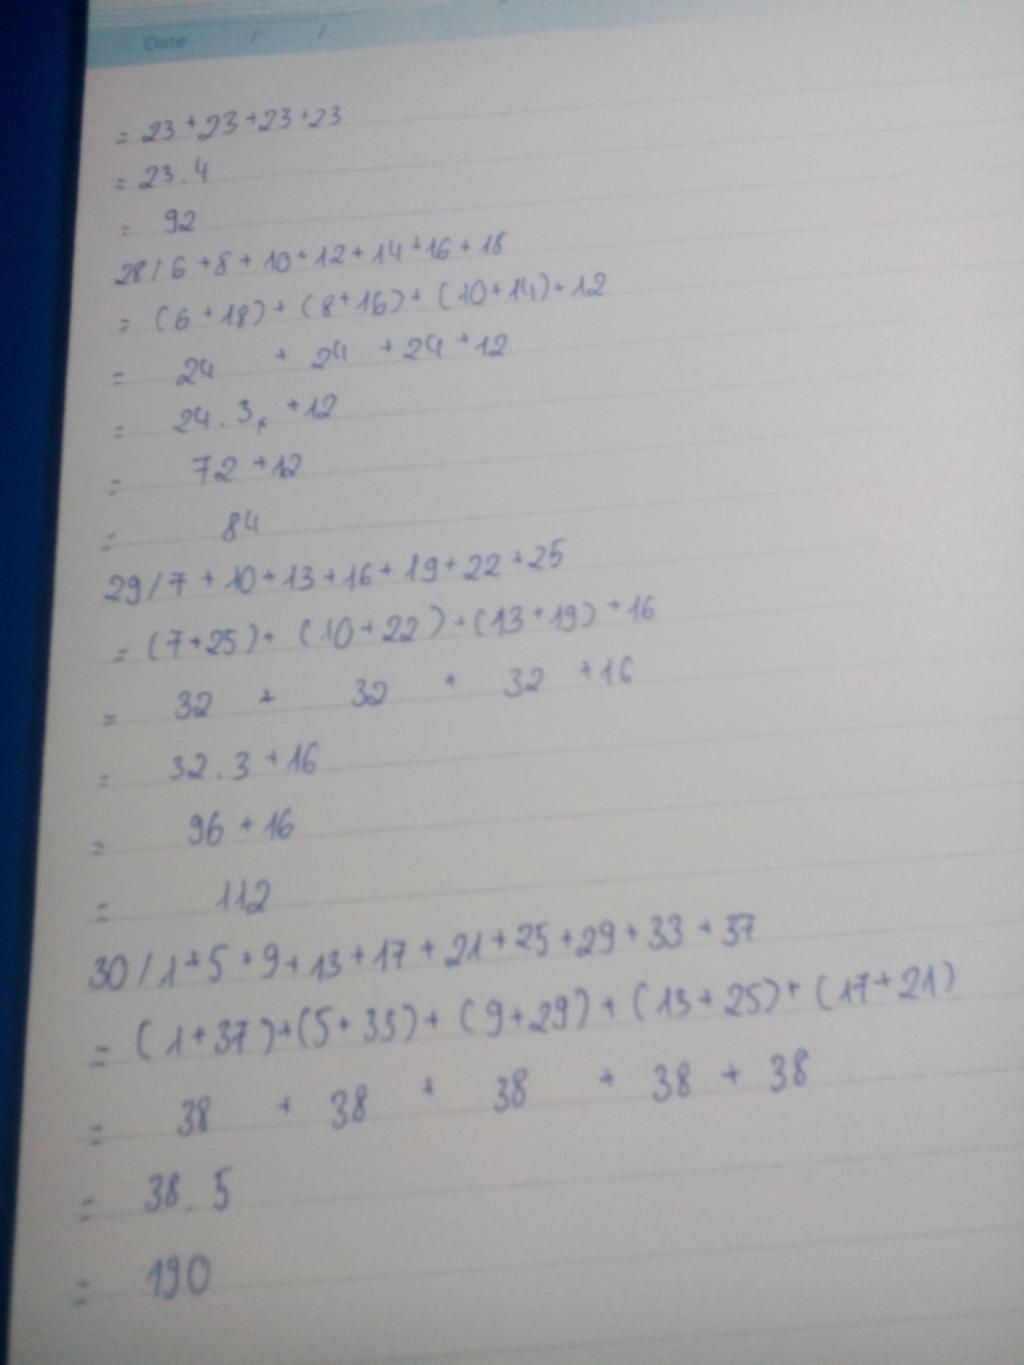 Date / /
= 23 + 23 + 23 + 23
= 23 . 4
= 92
28 / 6 + 8 + 10 + 12 + 14 + 16 + 18
= (6 + 18) + (8 + 16) + (10 + 14) + 12
= 24 + 24 + 24 + 12
= 24 . 3 + 12
= 72 + 12
= 84
29 / 7 + 10 + 13 + 16 + 19 + 22 + 25
= (7 + 25) + (10 + 22) + (13 + 19) + 16
= 32 + 32 + 32 + 16
= 32 . 3 + 16
= 96 + 16
= 112
30 / 1 + 5 + 9 + 13 + 17 + 21 + 25 + 29 + 33 + 37
= (1 + 37) + (5 + 33) + (9 + 29) + (13 + 25) + (17 + 21)
= 38 + 38 + 38 + 38 + 38
= 38 . 5
= 190